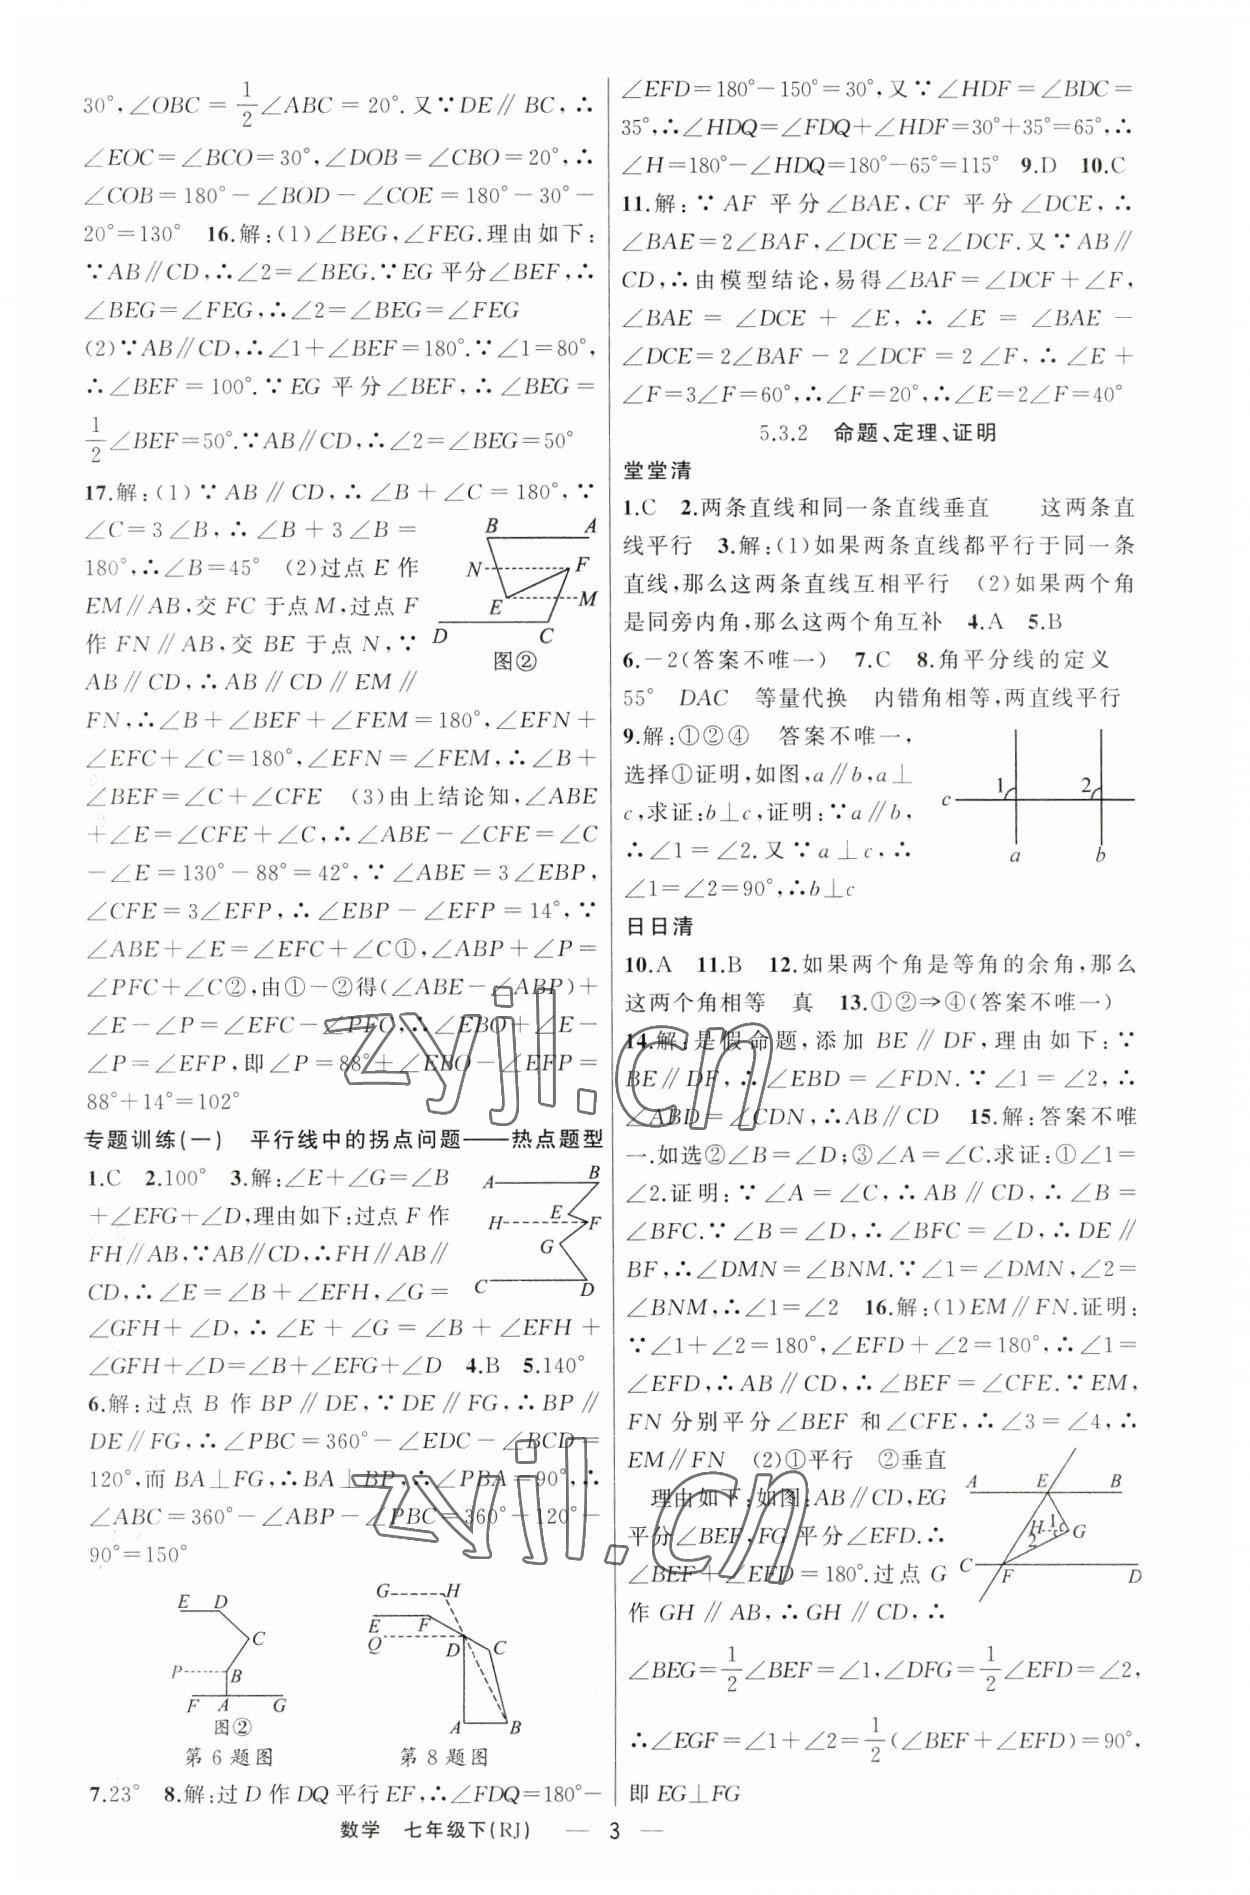 30°,∠OBC=1/2∠ABC=20°.又∵DE∥BC,∴
∠EOC=∠BCO=30°,∠DOB=∠CBO=20°,∴
∠COB=180°-∠BOD-∠COE=180°-30°-
20°=130° 16.解:(1)∠BEG,∠FEG.理由如下:
∵AB∥CD,∴∠2=∠BEG.∵EG平分∠BEF,∴
∠BEG=∠FEG,∴∠2=∠BEG=∠FEG
(2)∵AB∥CD,∴∠1+∠BEF=180°.∵∠1=80°,
∴∠BEF=100°.∵EG平分∠BEF,∴∠BEG=
1/2∠BEF=50°.∵AB∥CD,∴∠2=∠BEG=50°
17.解:(1)∵AB∥CD,∴∠B+∠C=180°,∵
∠C=3∠B,∴∠B+3∠B=
180°,∴∠B=45° (2)过点E作
EM∥AB,交FC于点M,过点F
作FN∥AB,交BE于点N,∵
AB∥CD,∴AB∥CD∥EM∥
B A
N F
E M
D C
图②
FN,∴∠B+∠BEF+∠FEM=180°,∠EFN+
∠EFC+∠C=180°,∠EFN=∠FEM,∴∠B+
∠BEF=∠C+∠CFE (3)由上结论知,∠ABE
+∠E=∠CFE+∠C,∴∠ABE-∠CFE=∠C
-∠E=130°-88°=42°,∵∠ABE=3∠EBP,
∠CFE=3∠EFP,∴∠EBP-∠EFP=14°,∵
∠ABE+∠E=∠EFC+∠C①,∠ABP+∠P=
∠PFC+∠C②,由①-②得(∠ABE-∠ABP)+
∠E-∠P=∠EFC-∠PFC,∴∠EBO+∠E-
∠P=∠EFP,即∠P=88°+∠EBO-∠EFP=
88°+14°=102°
专题训练(一) 平行线中的拐点问题——热点题型
1.C 2.100° 3.解:∠E+∠G=∠B
+∠EFG+∠D,理由如下:过点F作
FH∥AB,∵AB∥CD,∴FH∥AB∥
CD,∴∠E=∠B+∠EFH,∠G=
A B
E
H F
G
C D
∠GFH+∠D,∴∠E+∠G=∠B+∠EFH+
∠GFH+∠D=∠B+∠EFG+∠D 4.B 5.140°
6.解:过点B作BP∥DE,∵DE∥FG,∴BP∥
DE∥FG,∴∠PBC=360°-∠EDC-∠BCD=
120°,而BA⊥FG,∴BA⊥BP,∴∠PBA=90°,∴
∠ABC=360°-∠ABP-∠PBC=360°-120°-
90°=150°
E D
C
P B
F A G
图②
第6题图
G H
E F
Q D C
A B
第8题图
7.23° 8.解:过D作DQ平行EF,∴∠FDQ=180°-
∠EFD=180°-150°=30°,又∵∠HDF=∠BDC=
35°,∴∠HDQ=∠FDQ+∠HDF=30°+35°=65°,∴
∠H=180°-∠HDQ=180°-65°=115° 9.D 10.C
11.解:∵AF平分∠BAE,CF平分∠DCE,∴
∠BAE=2∠BAF,∠DCE=2∠DCF.又∵AB∥
CD,∴由模型结论,易得∠BAF=∠DCF+∠F,
∠BAE=∠DCE+∠E,∴∠E=∠BAE-
∠DCE=2∠BAF-2∠DCF=2∠F,∴∠E+
∠F=3∠F=60°,∴∠F=20°,∴∠E=2∠F=40°
5.3.2 命题、定理、证明
堂堂清
1.C 2.两条直线和同一条直线垂直 这两条直
线平行 3.解:(1)如果两条直线都平行于同一条
直线,那么这两条直线互相平行 (2)如果两个角
是同旁内角,那么这两个角互补 4.A 5.B
6.-2(答案不唯一) 7.C 8.角平分线的定义
55° DAC 等量代换 内错角相等,两直线平行
9.解:①②④ 答案不唯一,
选择①证明,如图,a∥b,a⊥
c,求证:b⊥c,证明:∵a∥b,
∴∠1=∠2.又∵a⊥c,∴
∠1=∠2=90°,∴b⊥c
1 2
c
a b
日日清
10.A 11.B 12.如果两个角是等角的余角,那么
这两个角相等 真 13.①②⇒④(答案不唯一)
14.解:是假命题,添加BE∥DF,理由如下:∵
BE∥DF,∴∠EBD=∠FDN.∵∠1=∠2,∴
∠ABD=∠CDN,∴AB∥CD 15.解:答案不唯
一.如选②∠B=∠D;③∠A=∠C.求证:①∠1=
∠2.证明:∵∠A=∠C,∴AB∥CD,∴∠B=
∠BFC.∵∠B=∠D,∴∠BFC=∠D,∴DE∥
BF,∴∠DMN=∠BNM.∵∠1=∠DMN,∠2=
∠BNM,∴∠1=∠2 16.解:(1)EM∥FN.证明:
∵∠1+∠2=180°,∠EFD+∠2=180°,∴∠1=
∠EFD,∴AB∥CD,∴∠BEF=∠CFE.∵EM,
FN分别平分∠BEF和∠CFE,∴∠3=∠4,∴
EM∥FN (2)①平行 ②垂直
理由如下:如图:AB∥CD,EG
平分∠BEF,FG平分∠EFD.∴
∠BEF+∠EFD=180°.过点G
作GH∥AB,∴GH∥CD,∴
A E B
H 1
2 G
C F D
∠BEG=1/2∠BEF=∠1,∠DFG=1/2∠EFD=∠2,
∴∠EGF=∠1+∠2=1/2(∠BEF+∠EFD)=90°,
即EG⊥FG
数学 七年级下(RJ) — 3 —
zyjl.cn
zyjl.cn